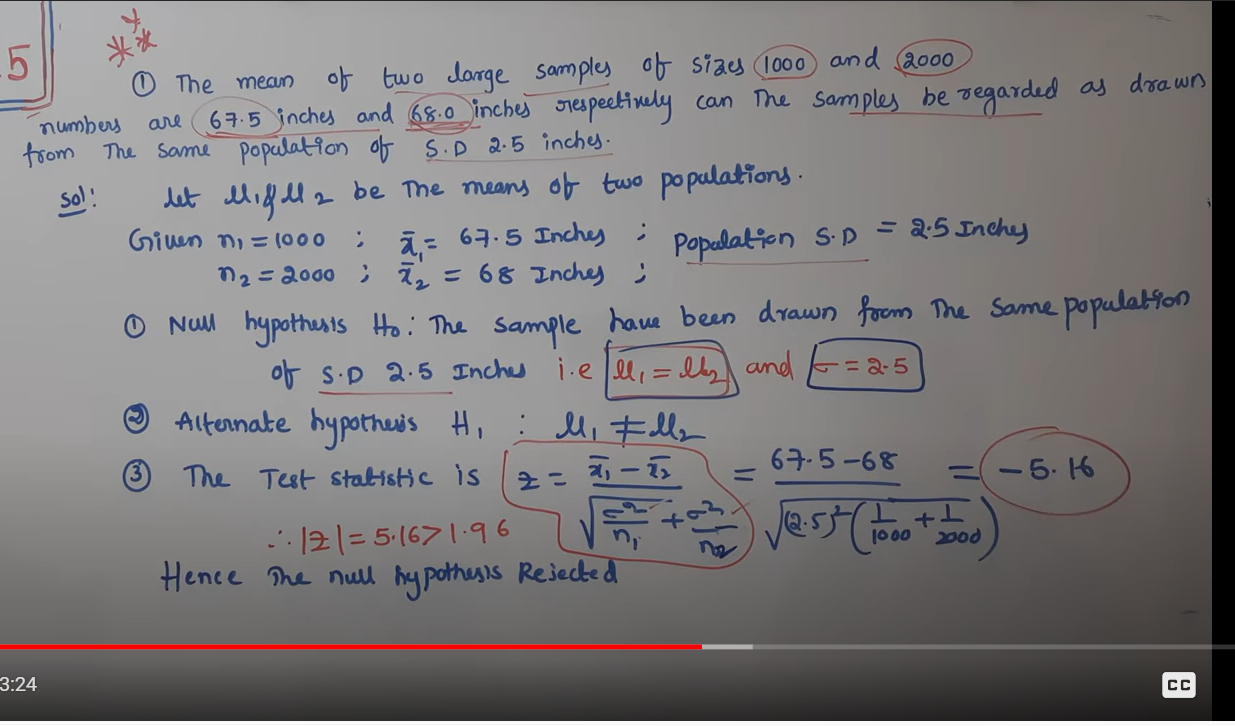 5
① The mean of two large samples of sizes 1000 and 2000
numbers are 67.5 inches and 68.0 inches respectively can The samples be regarded as drawn
from The same population of S.D 2.5 inches.
Sol: Let μ₁ & μ₂ be The means of two populations.
Given n₁ = 1000 ; x̄₁ = 67.5 Inches ; Population S.D = 2.5 Inches
n₂ = 2000 ; x̄₂ = 68 Inches ;
① Null hypothesis H₀ : The sample have been drawn from The same population
of S.D 2.5 Inches i.e μ₁ = μ₂ and σ = 2.5
② Alternate hypothesis H₁ : μ₁ ≠ μ₂
③ The Test statistic is z = (x̄₁ - x̄₂) / √(σ²/n₁ + σ²/n₂) = (67.5 - 68) / √((2.5)² (1/1000 + 1/2000)) = -5.16
∴ |z| = 5.16 > 1.96
Hence The null hypothesis Rejected
3:24
CC